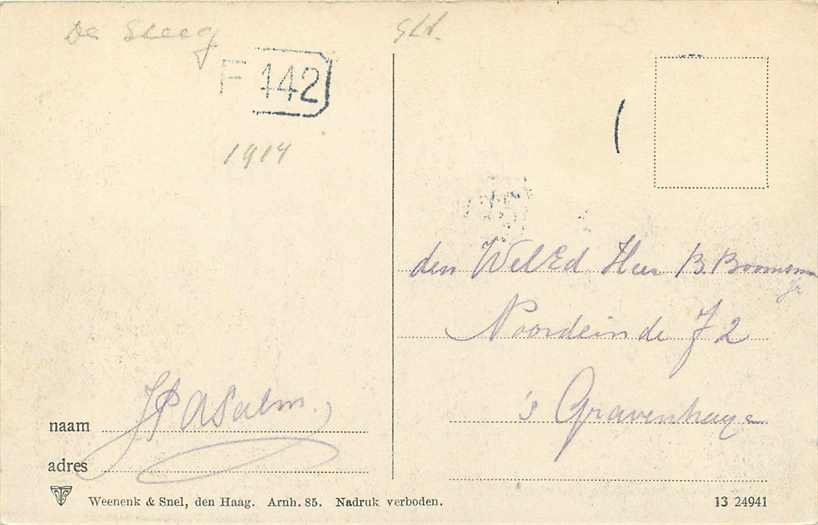 De Steeg
Gld.
F 142
1914
den WelEd Heer B. Boomsma
Jr
Noordeinde 72
's Gravenhage
naam
adres
Weenenk & Snel, den Haag. Arnh. 85. Nadruk verboden.
13 24941